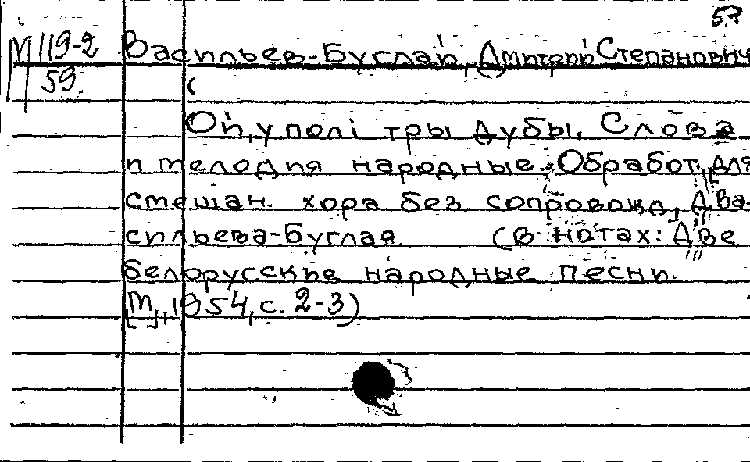 57
М 119-2
59
Васильев-Буглай, Дмитрий Степанович
Ой, у полі тры дубы. Слова
и мелодия народные. Обработ. для
смешан. хора без сопровожд. Д. Ва-
сильева-Буглая (в нотах: Две
белорусские народные песни.
[М], 1954, с. 2-3)